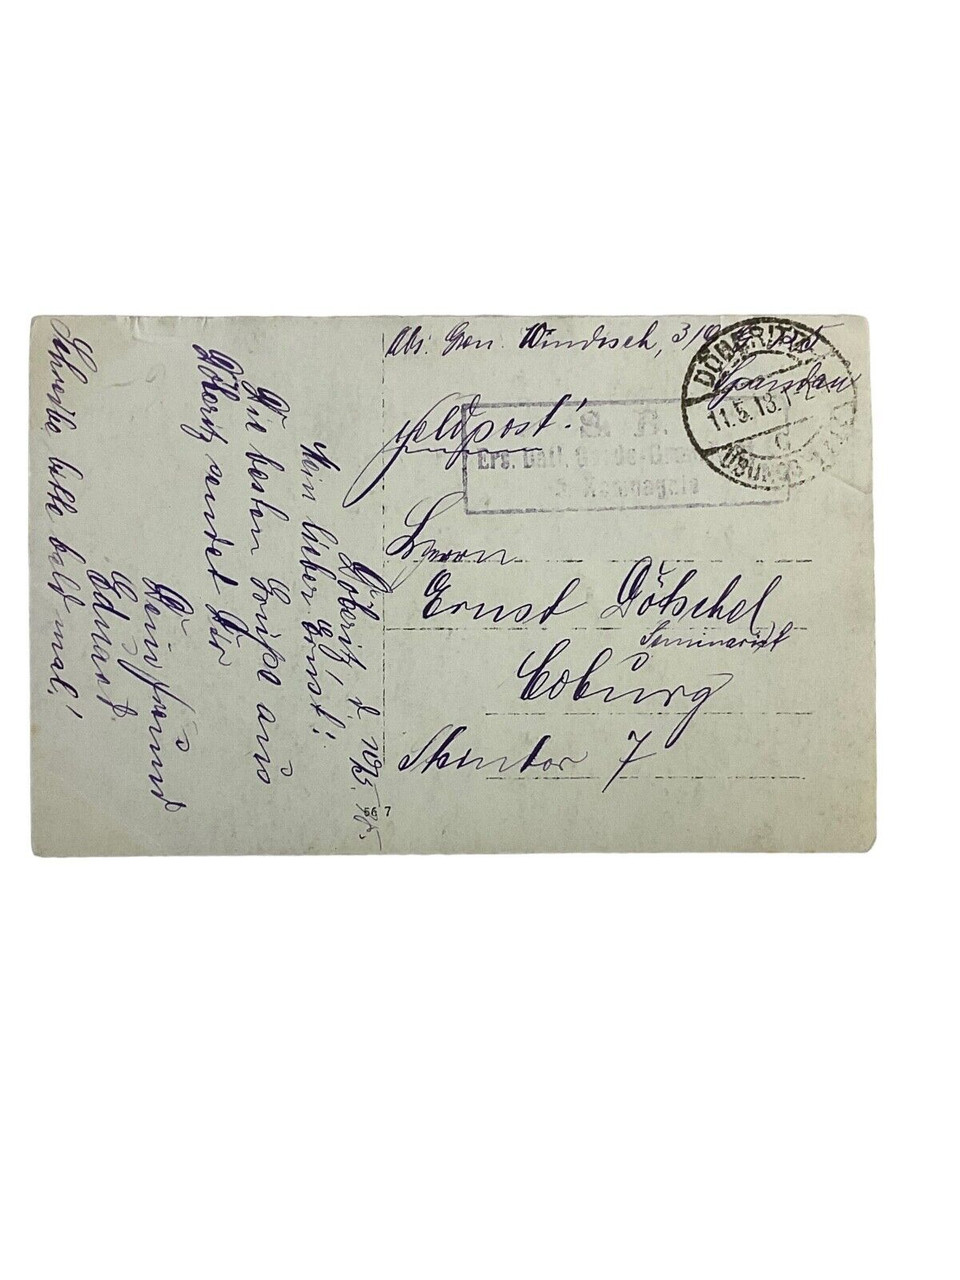 Döberitz, d. 10/5. 18.
Mein lieber Ernst!
Die besten Grüße aus
Döberitz sendet Dir
Dein Freund
Eduard.
Schreibe bitte bald mal!
Abs. Gren. Windisch, 3/
Feldpost!
S. B.
Ers. Batl. Garde-Gren
Kompagnie
DÖBERITZ
11.5.18.
ÜBUNGSPLATZ
Herrn
Ernst Dötschel
Seminarist
Coburg
Steintor 7
56 7